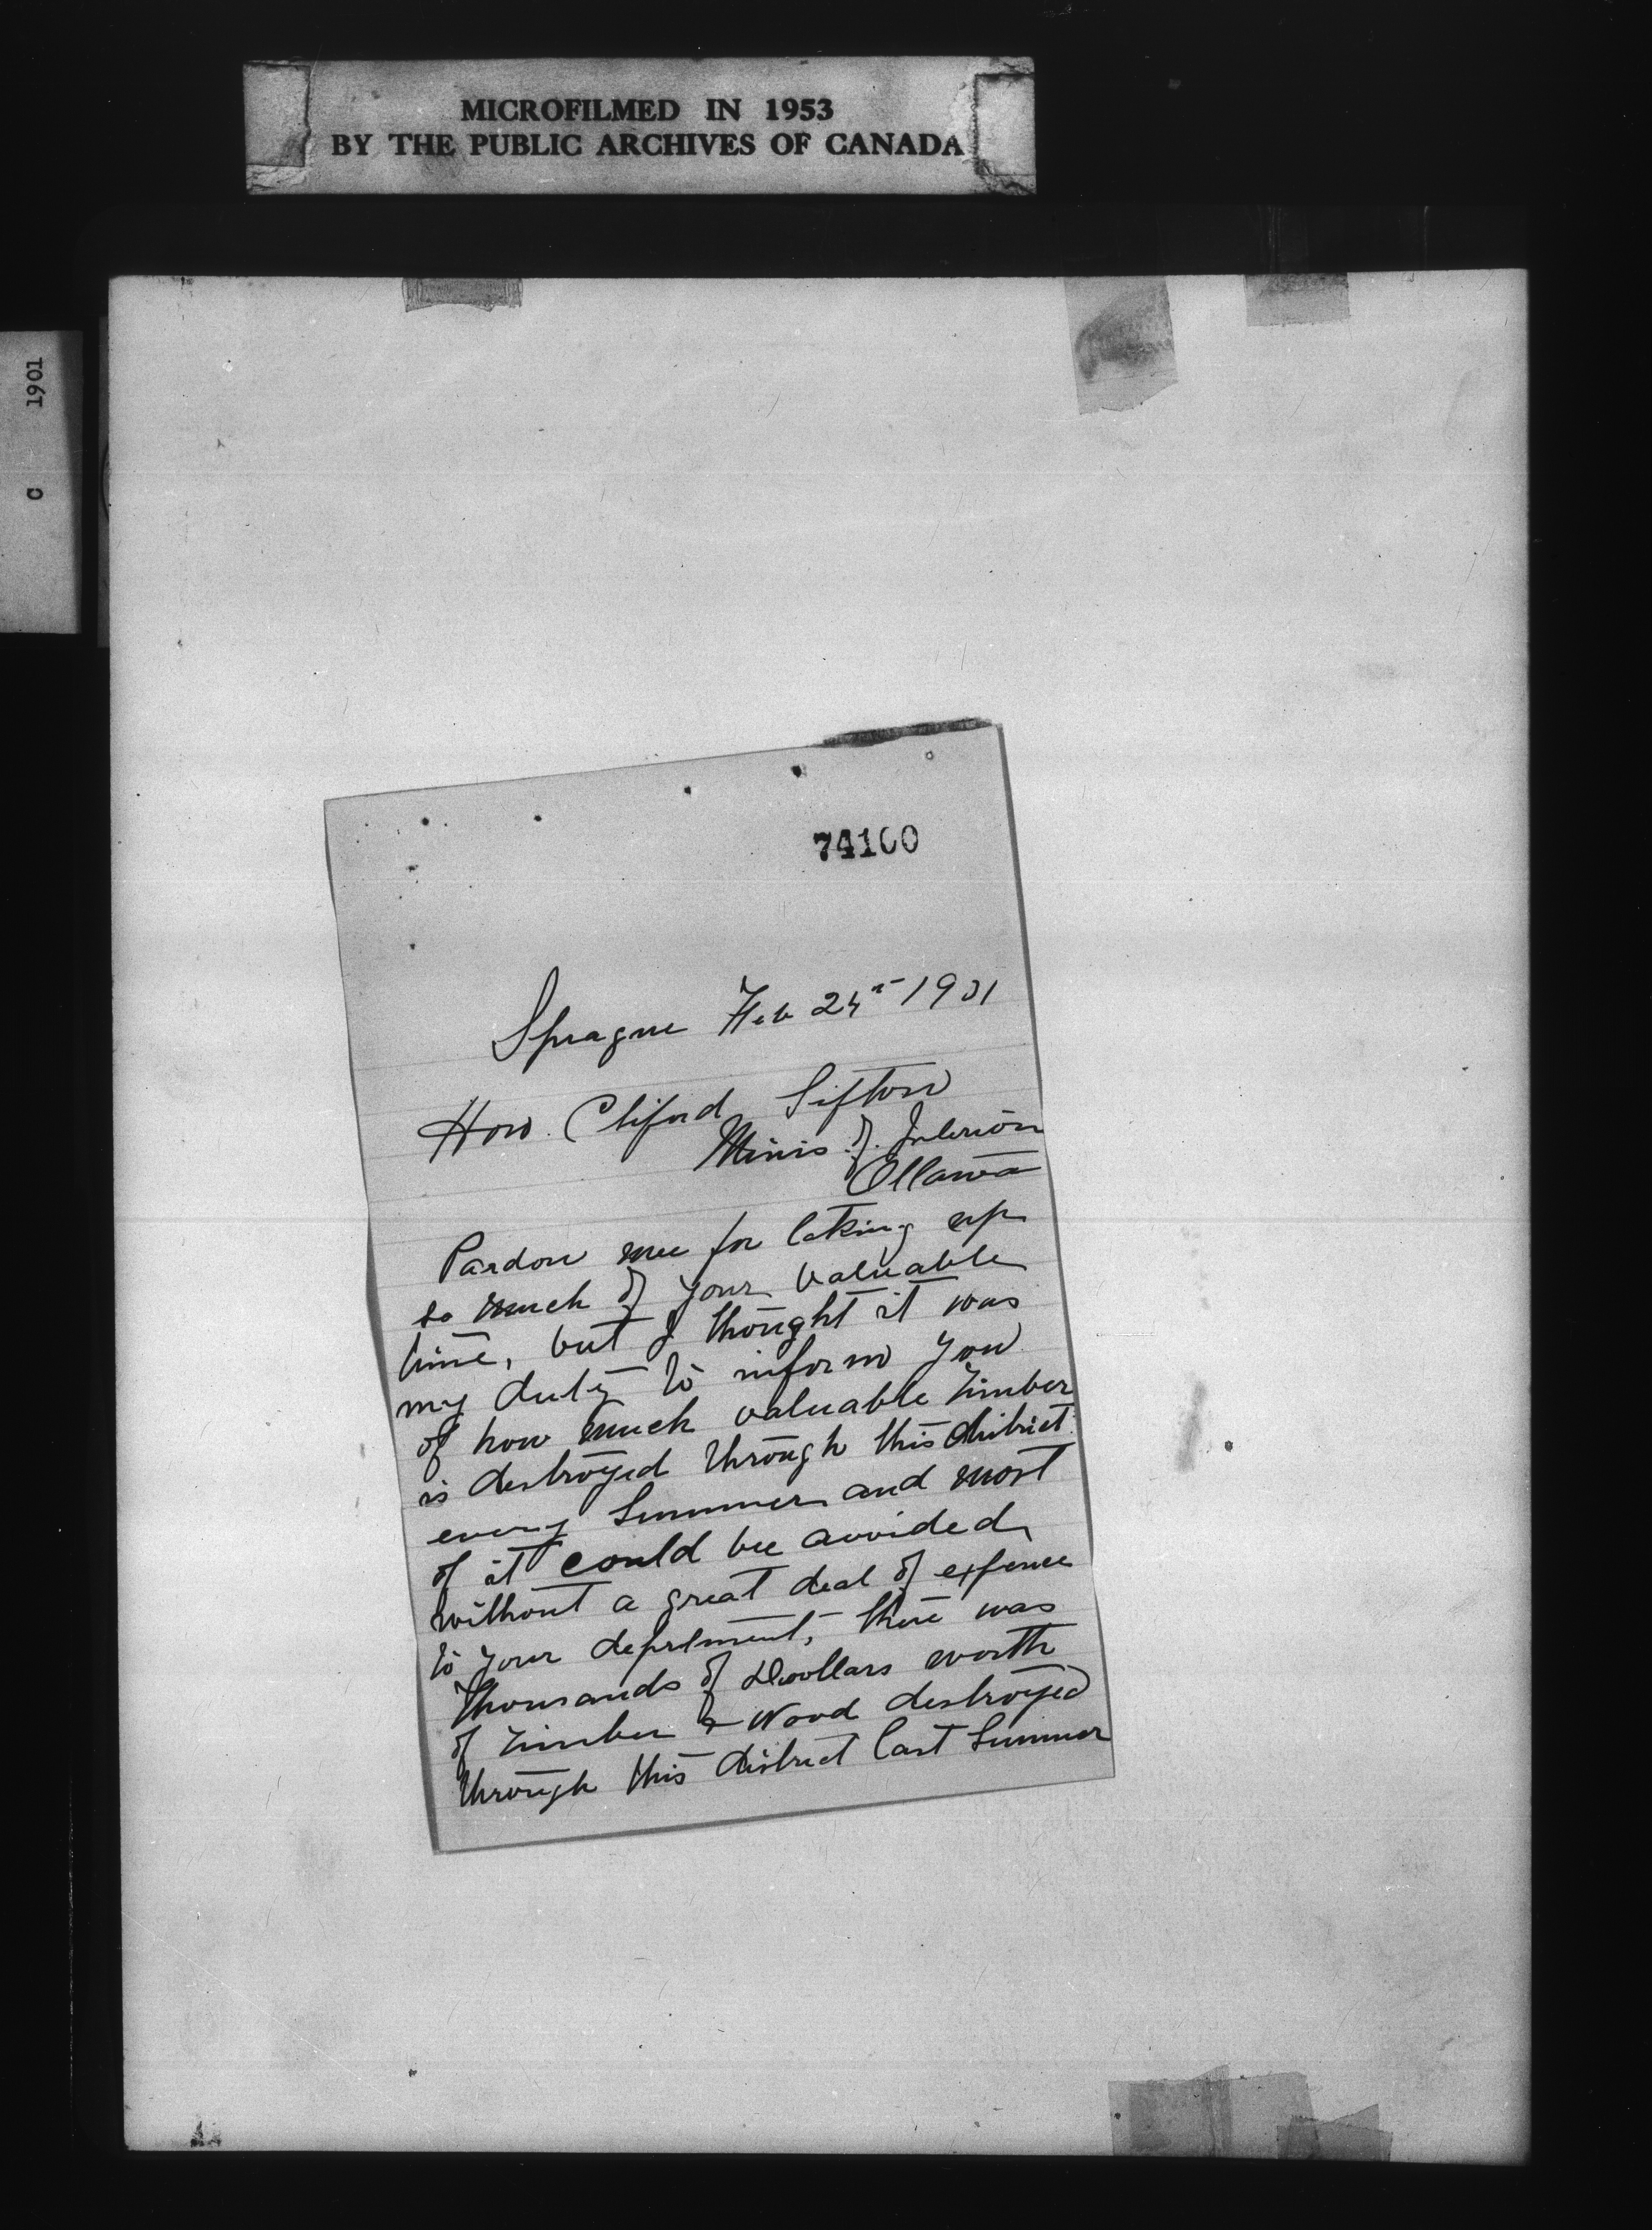 MICROFILMED IN 1953
BY THE PUBLIC ARCHIVES OF CANADA
C 1901
74100
Sprague Feb 24th 1901
Hon. Cliford Sifton
Minis. of. Interior
Ottawa
Pardon mee for taking up
so much of your valuable
time, but I thought it was
my duty to inform you
of how much valuable Timber
is destroyed through this district
every Summer and most
of it could bee avoided
without a great deal of expence
to your depertment, there was
Thousands of Doollars worth
of Timber & Wood destroyed
through this district last Summer